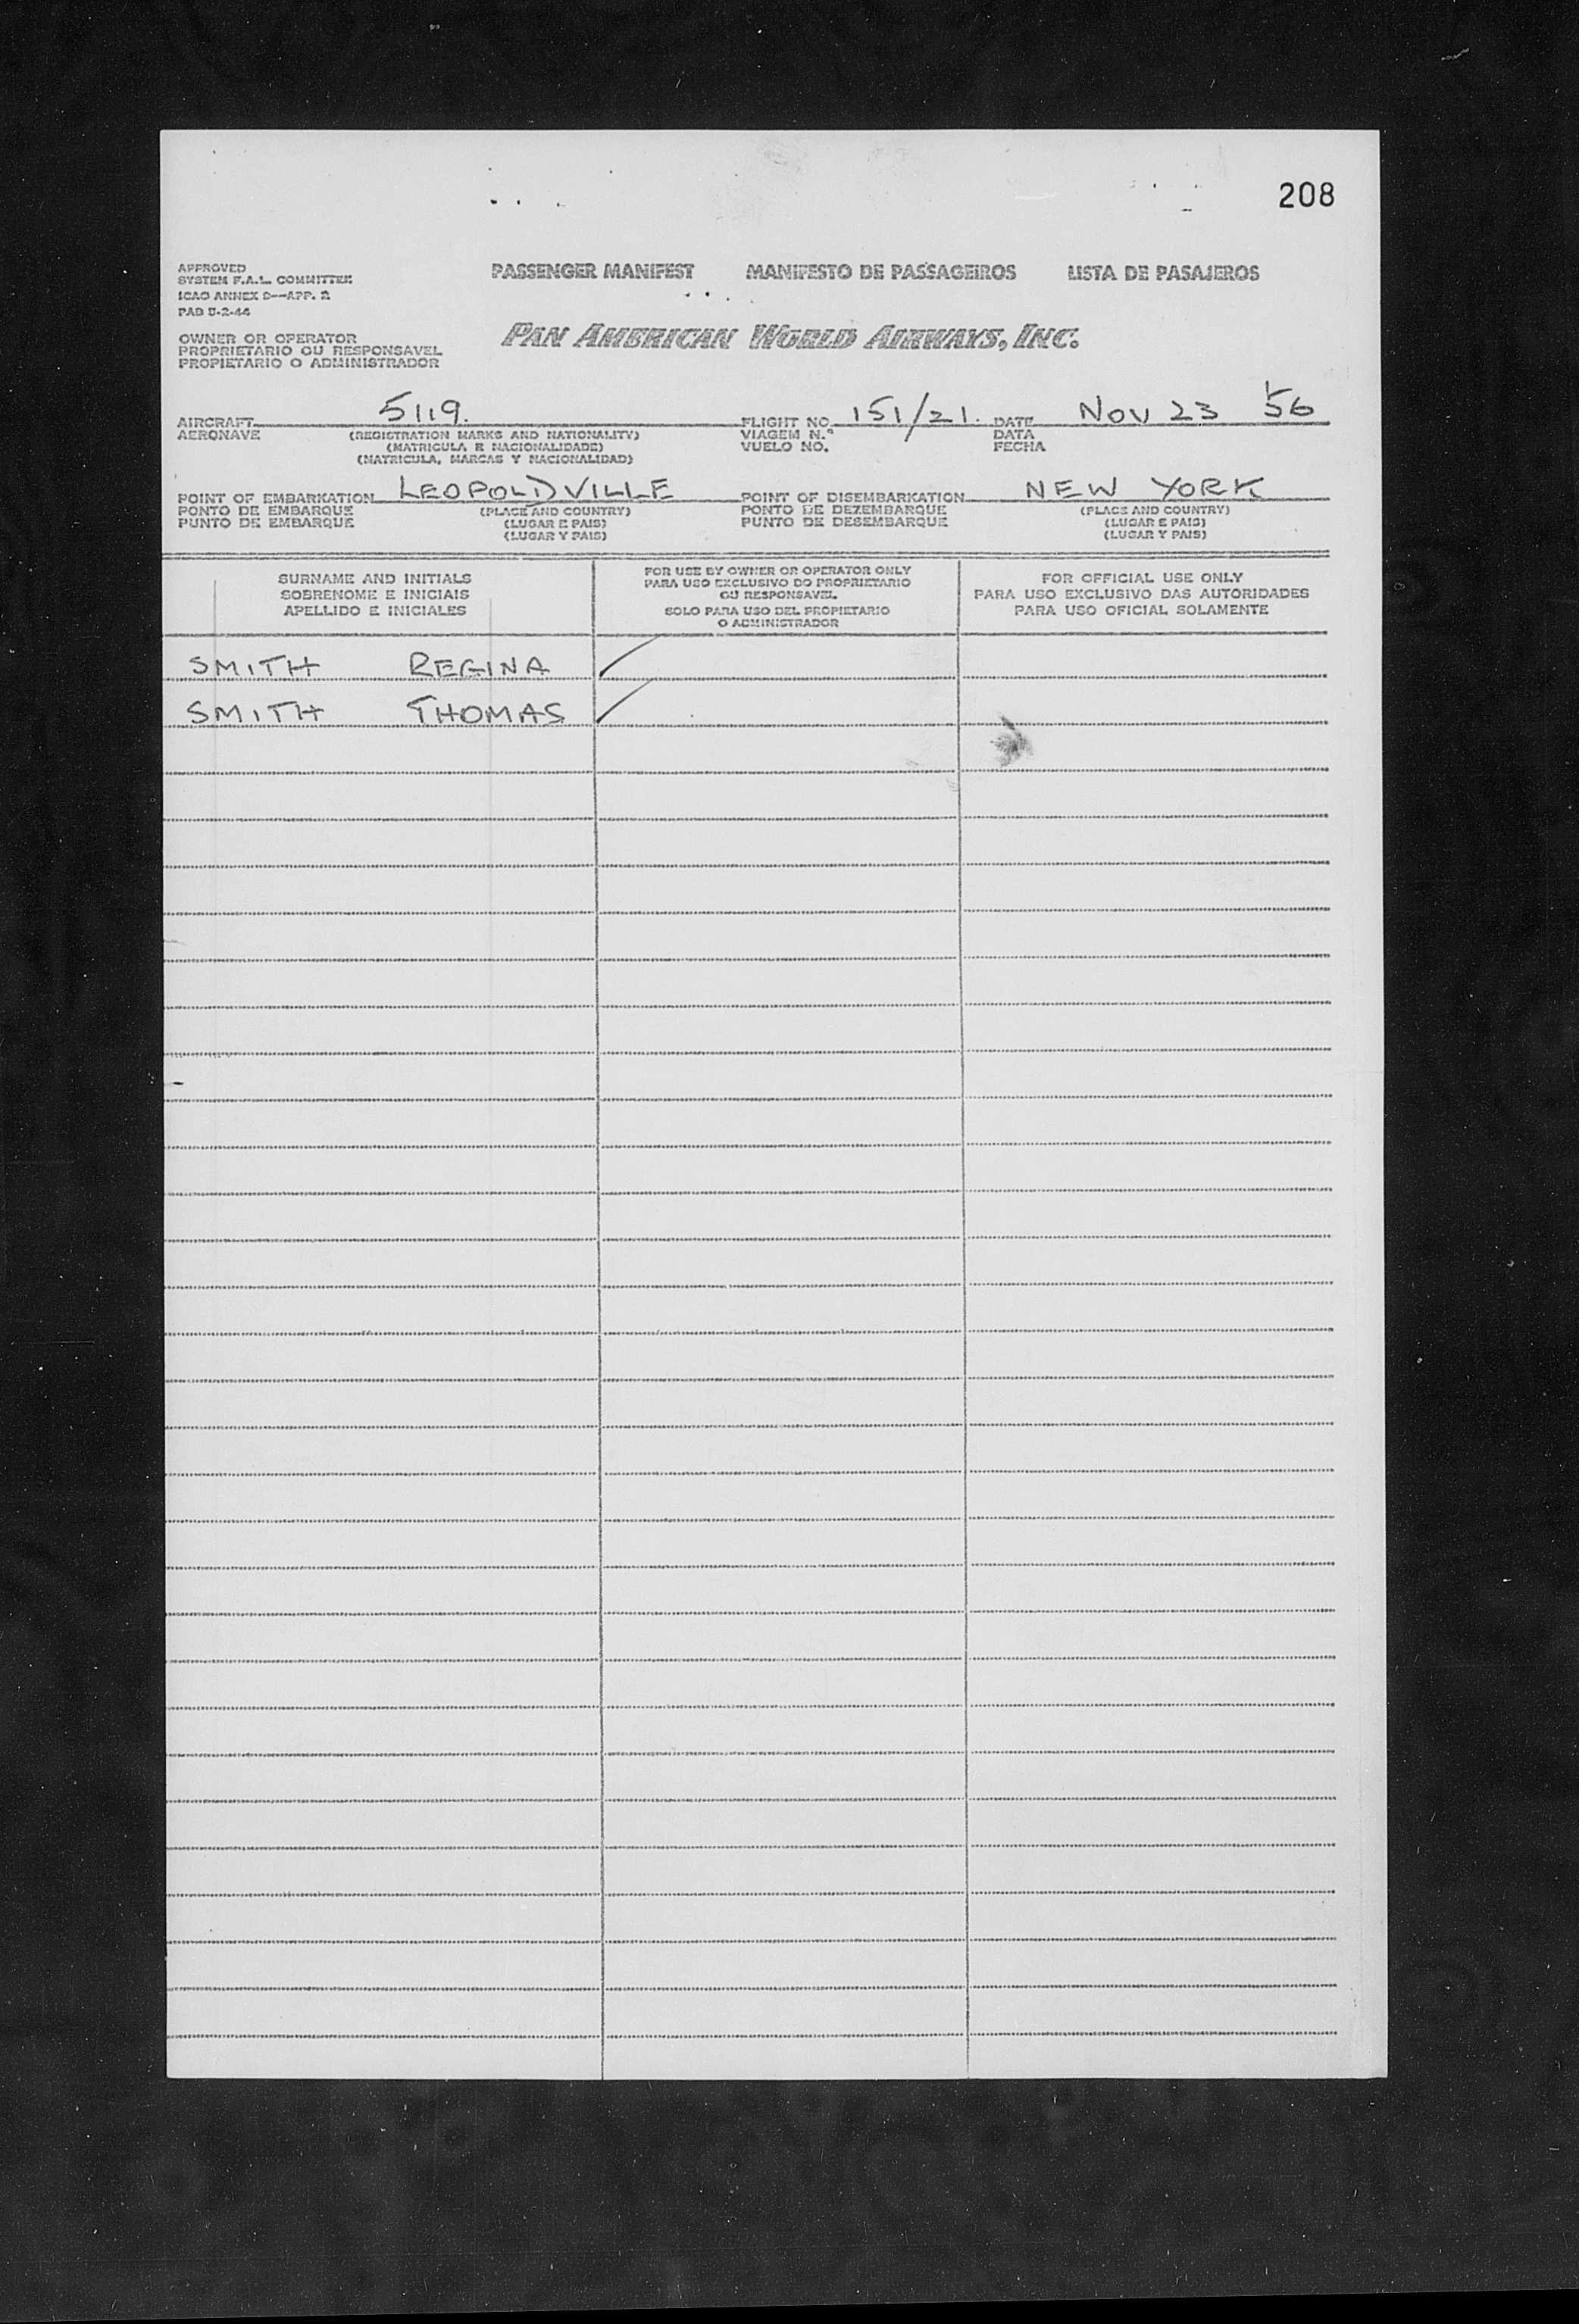 208
APPROVED
SYSTEM F.A.L. COMMITTEE
ICAO ANNEX 9—APP. 2
PAD
PASSENGER MANIFEST MANIFESTO DE PASSAGEIROS LISTA DE PASAJEROS
OWNER OR OPERATOR
PROPRIETARIO OU RESPONSAVEL
PROPIETARIO O ADMINISTRADOR
PAN AMERICAN WORLD AIRWAYS, INC.
AIRCRAFT 5119. FLIGHT NO. 151/21. DATE NOV 23 56
AERONAVE (REGISTRATION MARKS AND NATIONALITY) VIAGEM N.º DATA
(MATRICULA E NACIONALIDADE) VUELO NO. FECHA
(MATRICULA, MARCAS Y NACIONALIDAD)
POINT OF EMBARKATION LEOPOLDVILLE POINT OF DISEMBARKATION NEW YORK
PONTO DE EMBARQUE (PLACE AND COUNTRY) PONTO DE DEZEMBARQUE (PLACE AND COUNTRY)
PUNTO DE EMBARQUE (LUGAR E PAIS) PUNTO DE DESEMBARQUE (LUGAR E PAIS)
(LUGAR Y PAIS) (LUGAR Y PAIS)
SURNAME AND INITIALS
SOBRENOME E INICIAIS
APELLIDO E INICIALES
FOR USE BY OWNER OR OPERATOR ONLY
PARA USO EXCLUSIVO DO PROPRIETARIO
OU RESPONSAVEL
SOLO PARA USO DEL PROPIETARIO
O ADMINISTRADOR
FOR OFFICIAL USE ONLY
PARA USO EXCLUSIVO DAS AUTORIDADES
PARA USO OFICIAL SOLAMENTE
SMITH REGINA ✓
SMITH THOMAS ✓